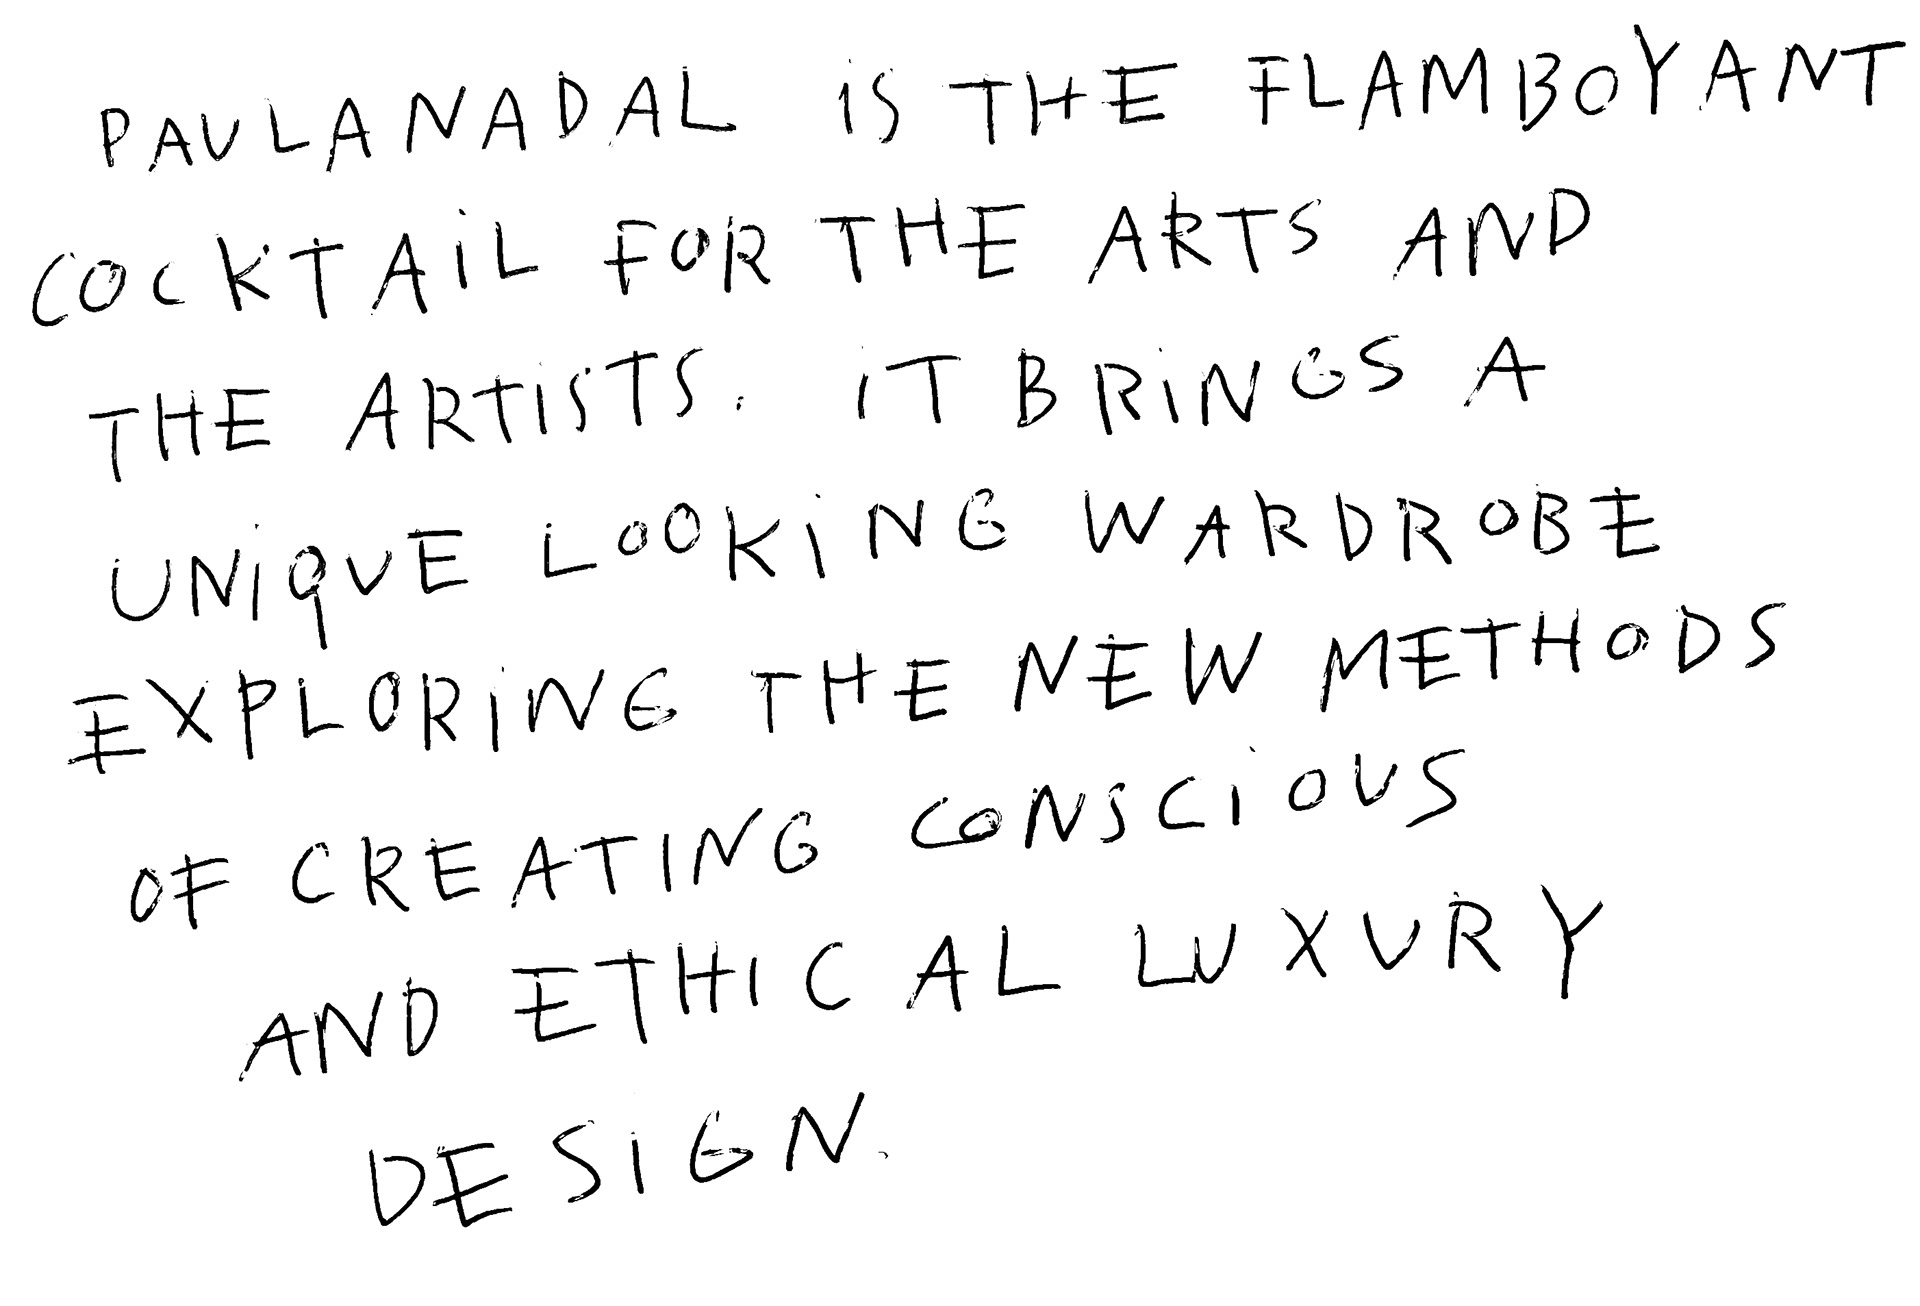 PAULANADAL iS THE FLAMBOYANT
COCKTAiL FOR THE ARTS AND
THE ARTiSTS. iT BRiNGS A
UNiQUE LOOKiNG WARDROBE
EXPLORiNG THE NEW METHODS
OF CREATING CONSCiOUS
AND ETHICAL LUXURY
DESiGN.